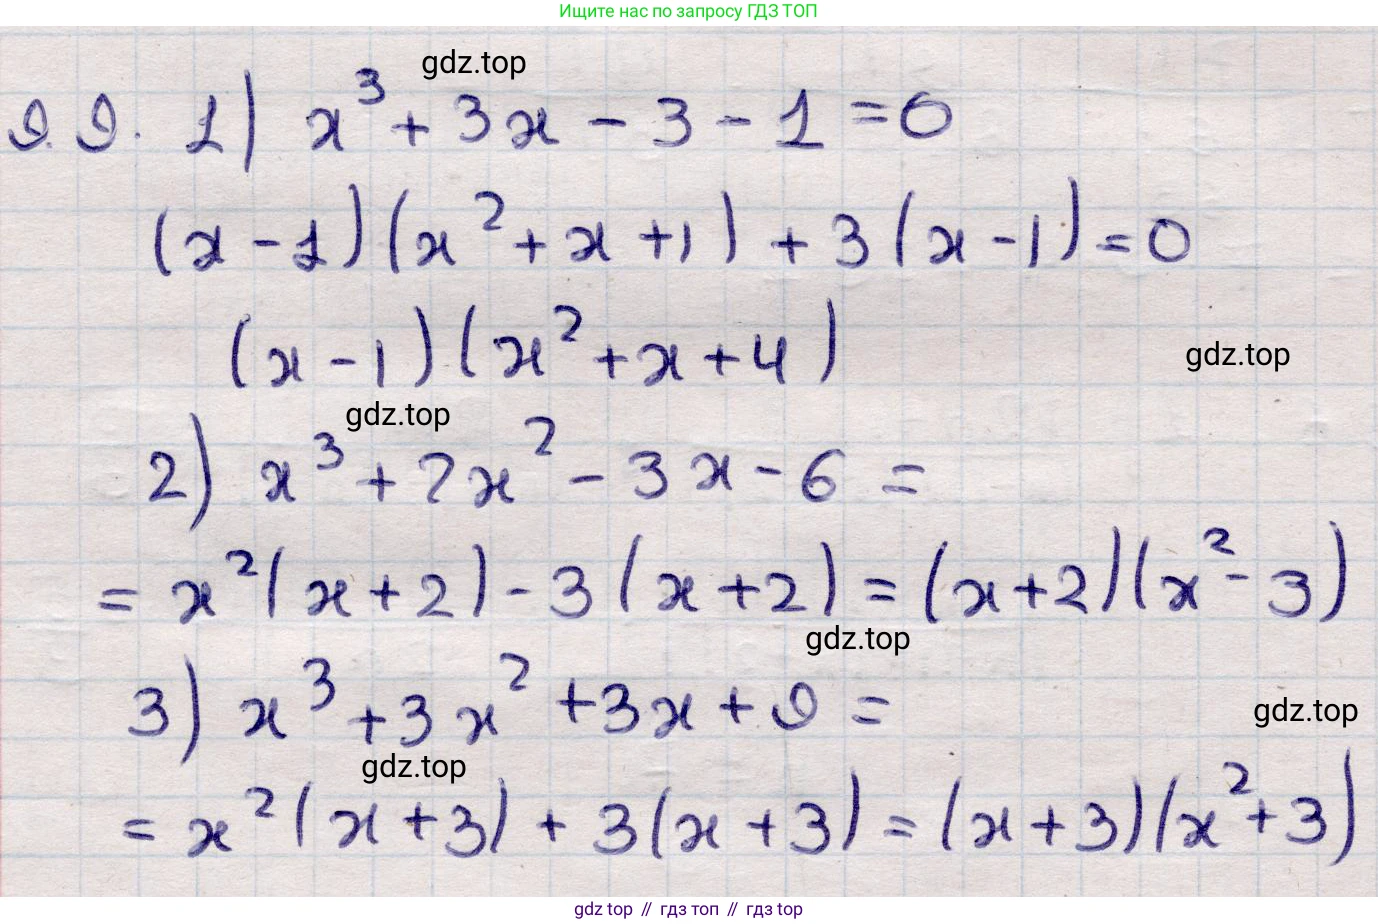 Ищите нас по запросу ГДЗ ТОП
gdz.top
9.9. 1) x³ + 3x - 3 - 1 = 0
(x - 1)(x² + x + 1) + 3(x - 1) = 0
(x - 1)(x² + x + 4)
gdz.top
gdz.top
2) x³ + 2x² - 3x - 6 =
= x²(x + 2) - 3(x + 2) = (x + 2)(x² - 3)
gdz.top
3) x³ + 3x² + 3x + 9 =
gdz.top
gdz.top
= x²(x + 3) + 3(x + 3) = (x + 3)(x² + 3)
gdz top // гдз топ // гдз top